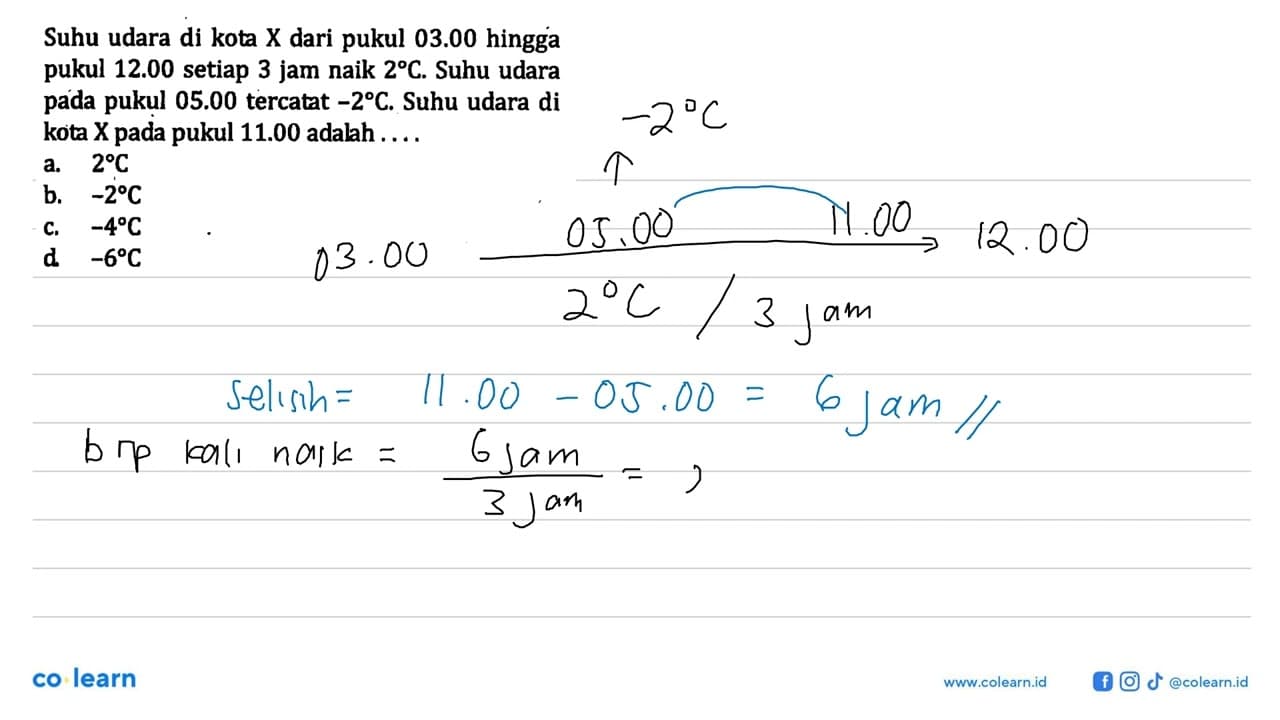 Suhu udara di kota X dari pukul 03.00 hingga
pukul 12.00 setiap 3 jam naik 2°C. Suhu udara
pada pukul 05.00 tercatat –2°C. Suhu udara di
kota X pada pukul 11.00 adalah ....
a. 2°C
b. –2°C
c. –4°C
d –6°C
–2°C
↑
03.00 05.00 11.00 → 12.00
2°C / 3 jam
selisih = 11.00 – 05.00 = 6 jam //
brp kali naik = 6 jam
3 jam =
co learn
www.colearn.id @colearn.id